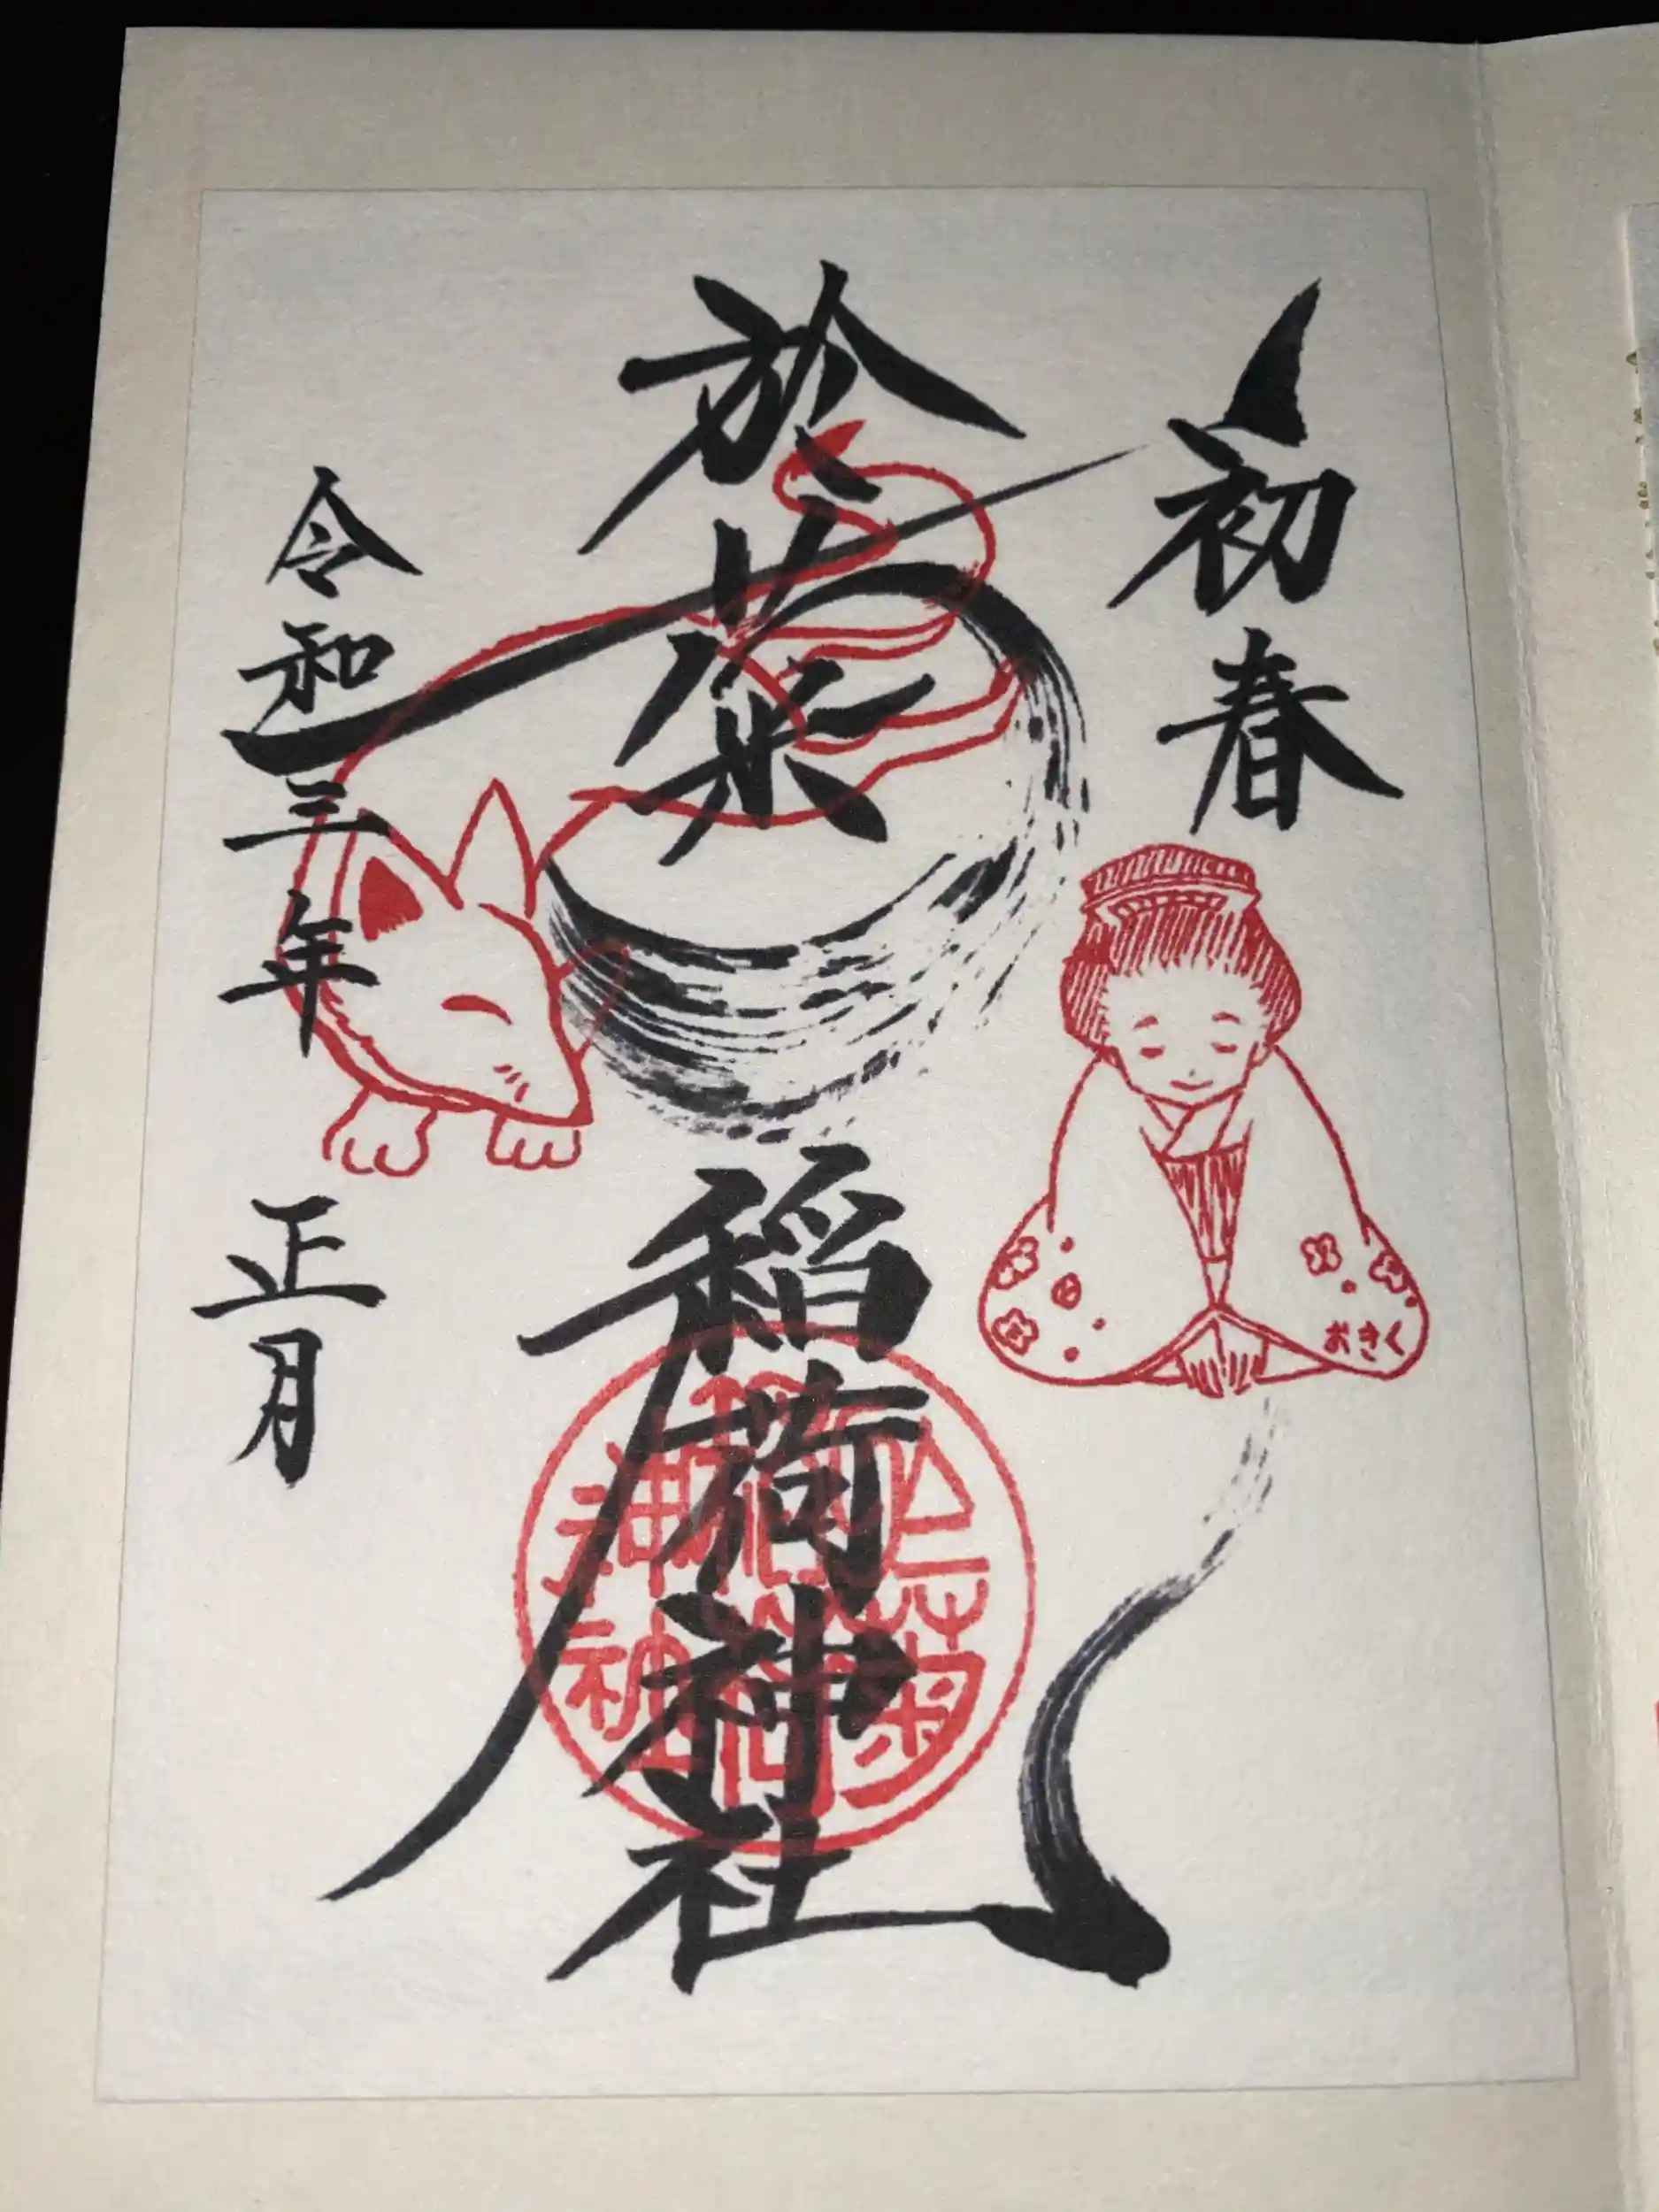 初春
於菊稲荷神社
おきく
令和三年 正月
於菊
稲荷
神社